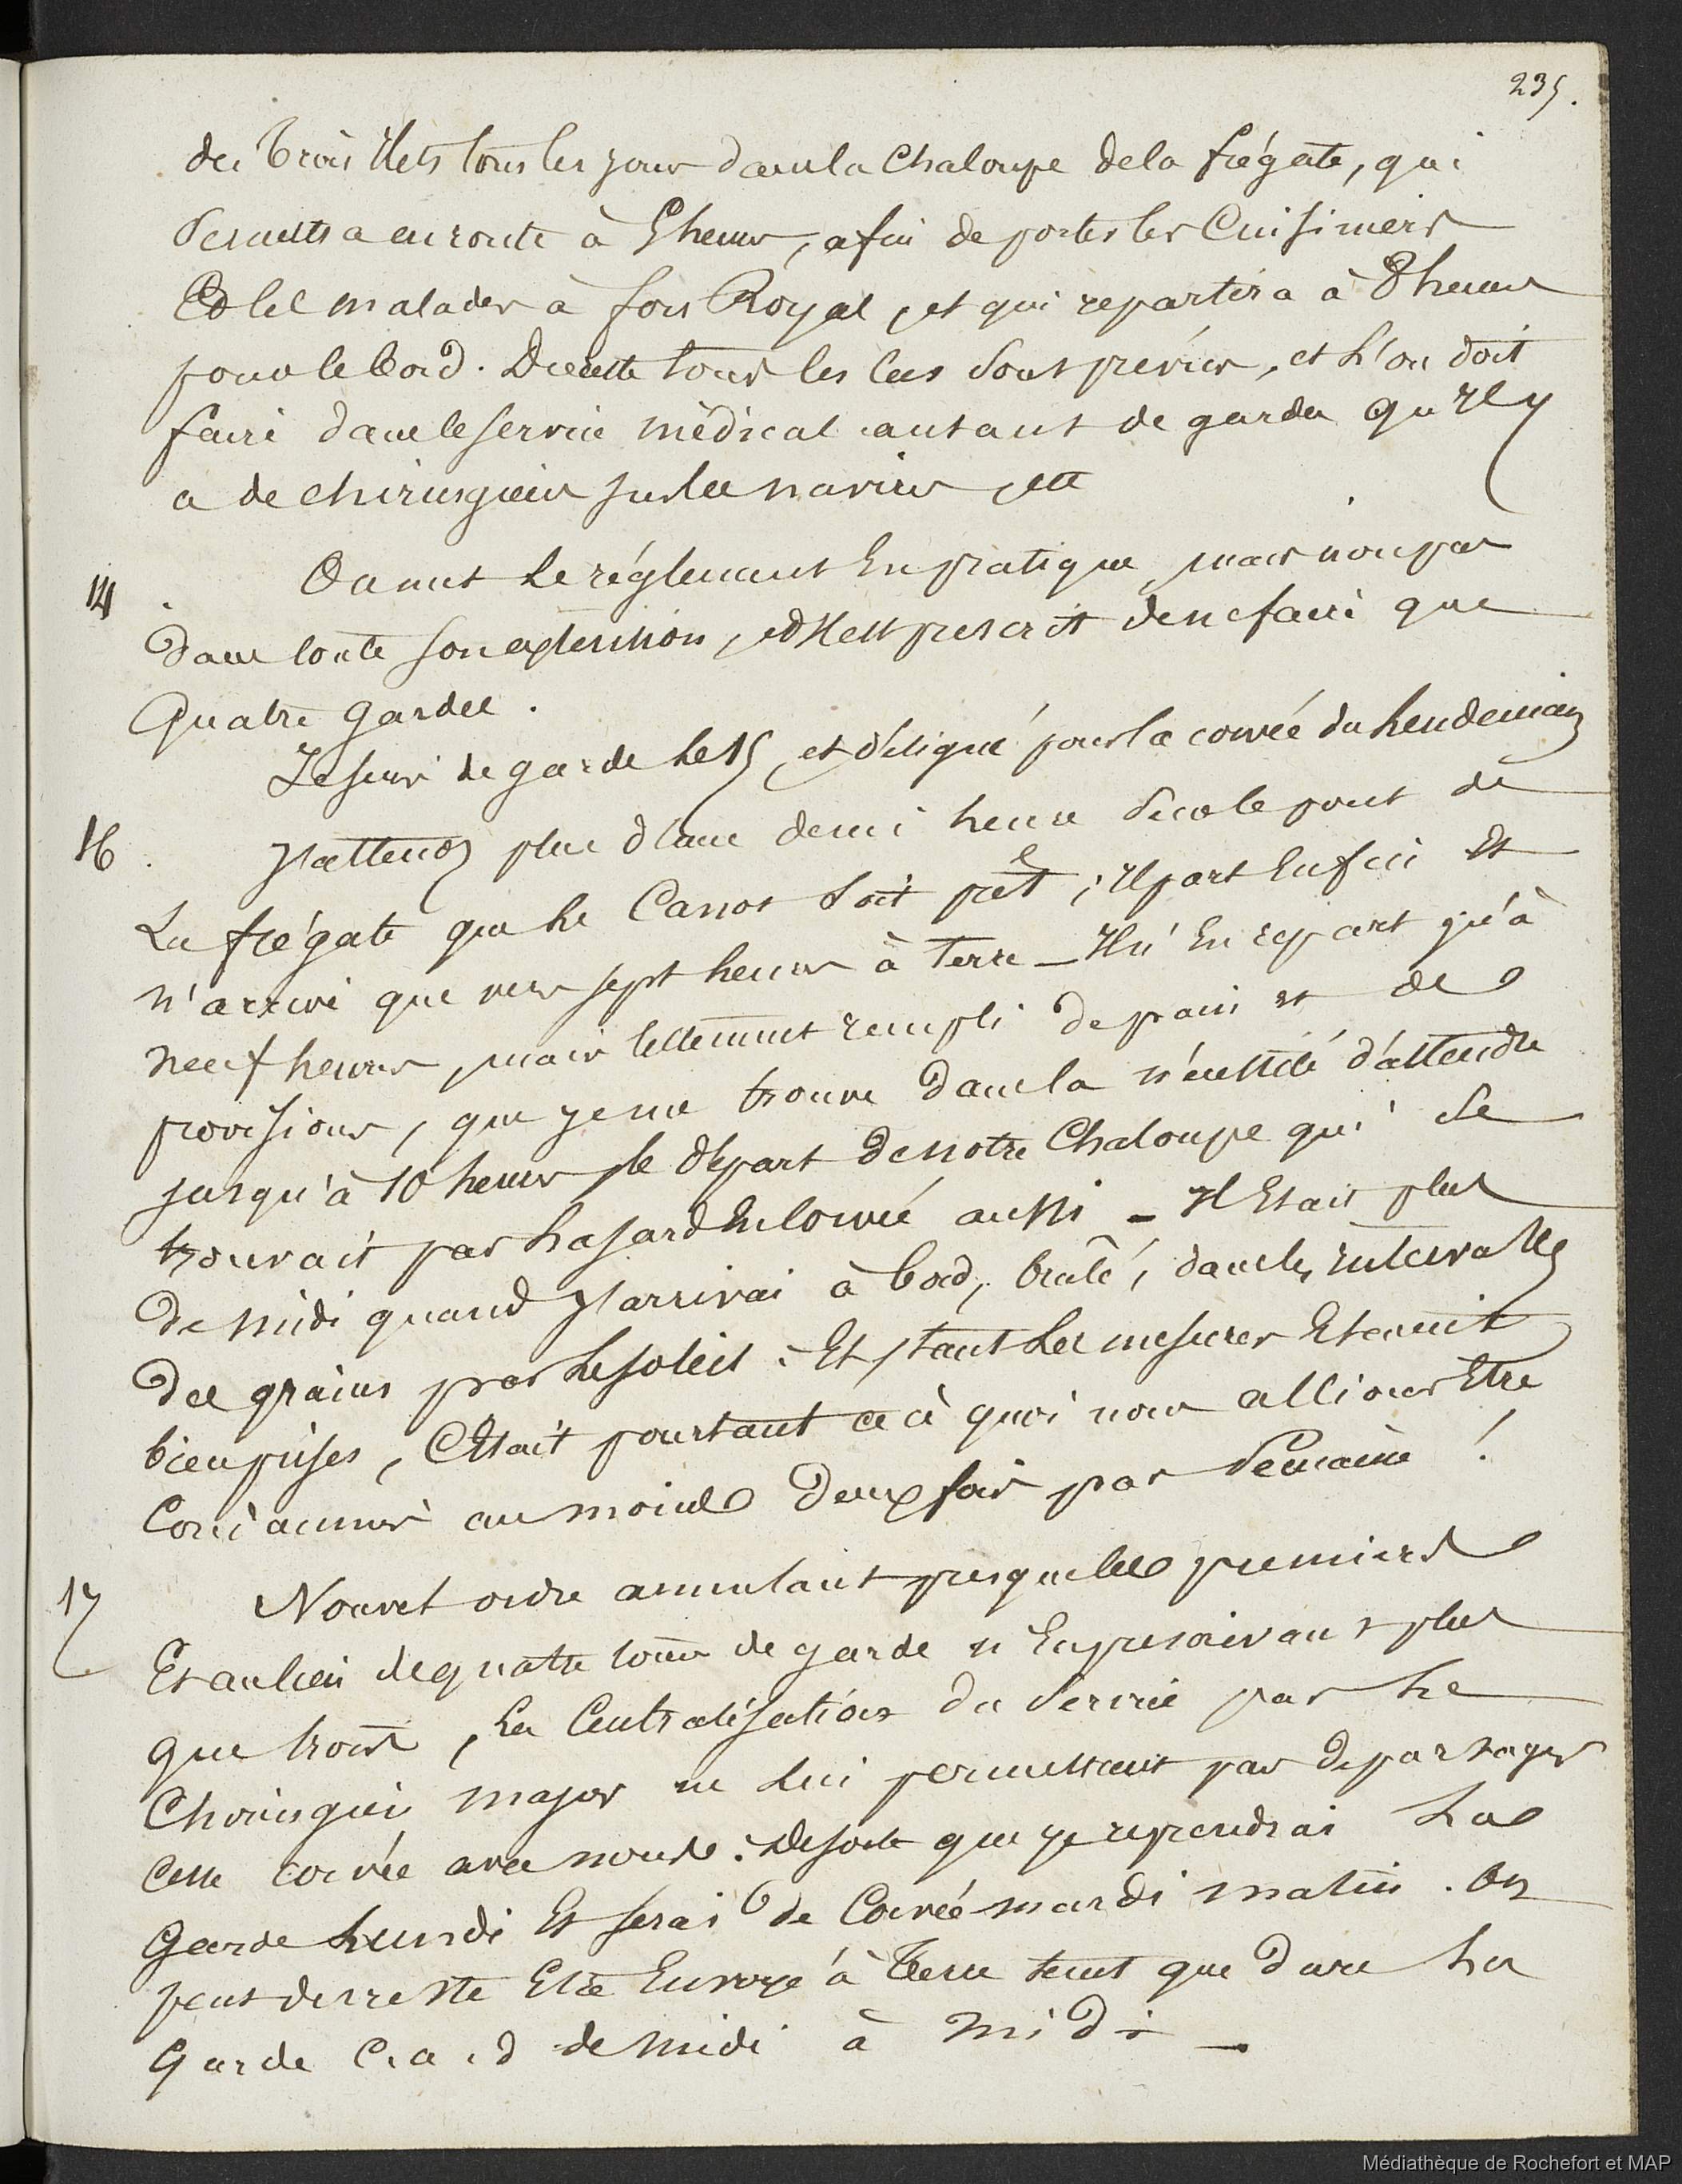 235.
des trois Ilets tous les jours dans la Chaloupe de la frégate, qui
se mettra en route à 5 heures, afin de porter les Cuisiniers
Et les malades à fort Royal, et qui repartira à 8 heures
pour le bord. De cette tous les cas sont prévus, et L'on doit
faire dans le service médical autant de gardes qu'Il y
a de chirurgiens sur les navires, ett
14. On met Le réglement En pratique, mais non pas
dans toute son extension, et Il est prescrit de ne faire que
Quatre gardes.
Je suis de garde Le 15, et désigné pour la corvée du Lendemain
16. J'attends plus d'une demi heure sur le pont de
La frégate que Le Canot soit prêt; Il part Enfin Et
n'arrive que vers sept heures à Terre _ Il n'En repart qu'à
neuf heures, mais tellement rempli de pain et de
provisions, que je me trouve dans la nécessité d'attendre
jusqu'à 10 heures le départ de notre Chaloupe qui se
trouvait par hasard En Corvée aussi _ Il Etait plus
de midi quand J'arrivai à bord, brulé, dans les intervalles
des grains par Le soleil. Et, tant Les mesures Etaient
bien prises, C'Etait pourtant ce à quoi nous allions Etre
Condamnés au moins deux fois par Semaine!
17 Nouvel ordre annulant presque les premiers
Et au lieu de quatre tours de garde n'En prescrivant plus
que trois, La Centralisation du Service par Le
Chirurgien major ne Lui permettant pas de partager
Cette corvée avec nous. De sorte que je reprendrai La
Garde Lundi Et serai de Corvée mardi matin. On
peut du reste Etre Envoyé à Terre tant que dure La
Garde C. a. d de midi à midi _
Médiathèque de Rochefort et MAP